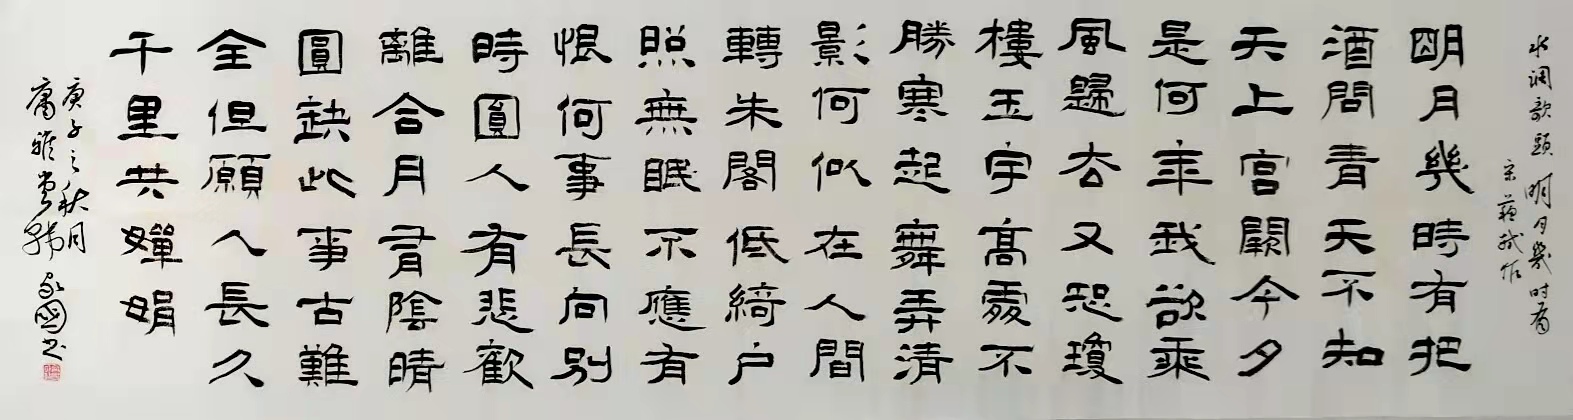 水调歌頭 明月幾时有
宋 蘇軾作
明月幾時有把
酒問青天不知
天上宮闕今夕
是何年我欲乘
風歸去又恐瓊
樓玉宇高處不
勝寒起舞弄清
影何似在人間
轉朱閣低綺户
照無眠不應有
恨何事長向别
時圓人有悲歡
離合月有陰晴
圓缺此事古難
全但願人長久
千里共嬋娟
庚子之秋月
國书